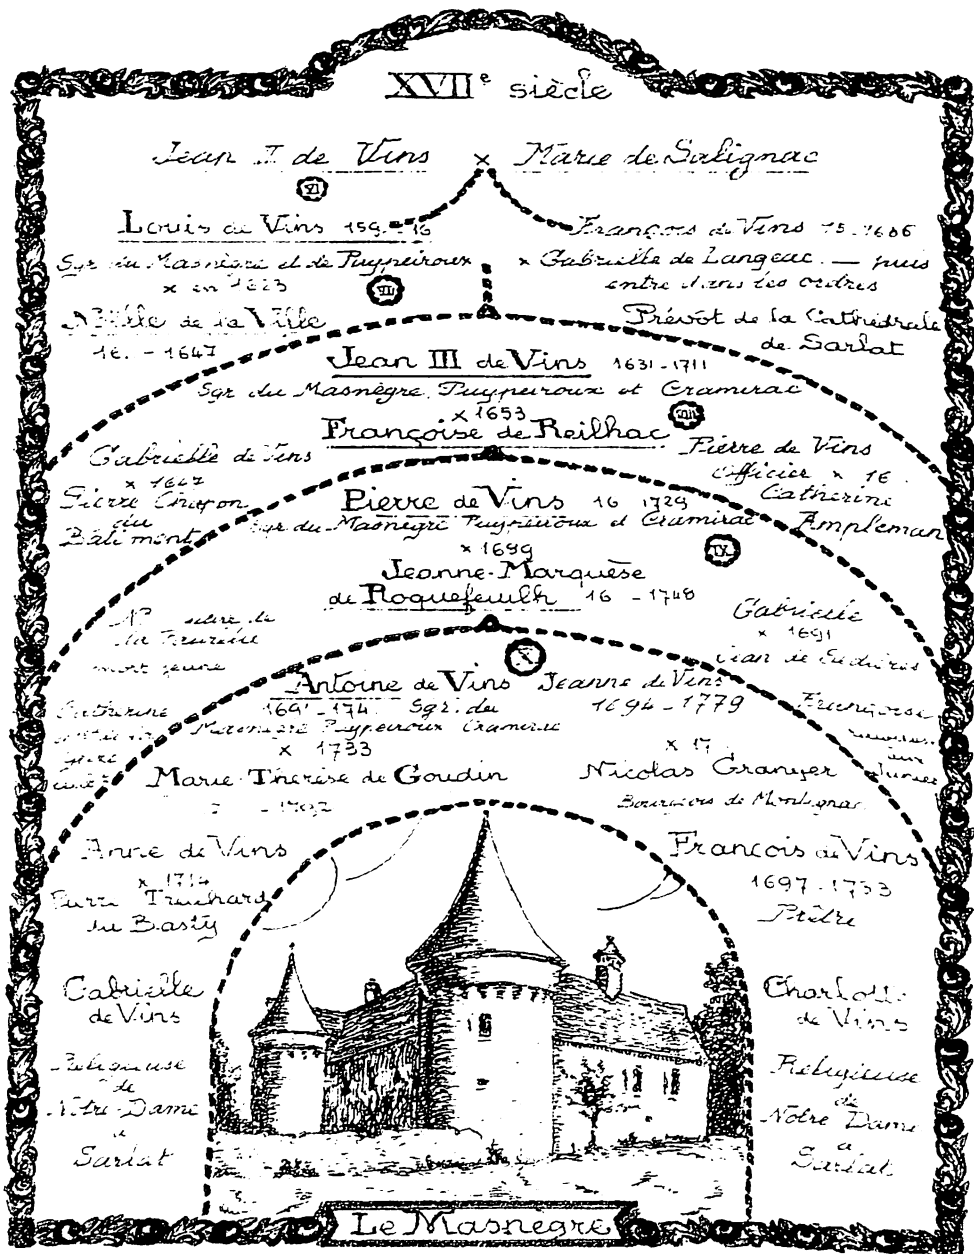 XVIIe siècle
Jean II de Vins x Marie de Salignac
VI
Louis de Vins
François de Vins
Sgr du Masnègre et de Puypeiroux
x Gabrielle de Langeac — puis
x en 1623
VII
entre dans les ordres
de la Ville
Prévôt de la Cathédrale
16. - 1647
de Sarlat
Jean III de Vins 1631-1711
Sgr du Masnègre, Puypeiroux et Cramirac
x 1653
VIII
Françoise de Reilhac
Gabrielle de Vins
x 1647
Pierre Chapon
du
Bâtiment
Pierre de Vins
Officier x 16.
Catherine
Ampleman
Pierre de Vins 16 1729
Sgr du Masnègre Puypeiroux et Cramirac
x 1699
IX
Jeanne-Marquèse
de Roquefeuilh 16 - 1748
mort jeune
Gabrielle
x 1691
Jean de
X
Antoine de Vins
1691-174
Sgr. du
Masnègre Puypeiroux Cramirac
x 1733
Marie-Thérèse de Goudin
Jeanne de Vins
1694-1779
x 17
Nicolas Granger
Bourgeois de Montignac
Catherine
Françoise
Anne de Vins
x 1714
Pierre Truchard
du Basty
François de Vins
1697-1733
Prêtre
Gabrielle
de Vins
Religieuse
de
Notre-Dame
à
Sarlat
Charlotte
de Vins
Religieuse
de
Notre Dame
à
Sarlat
Le Masnègre